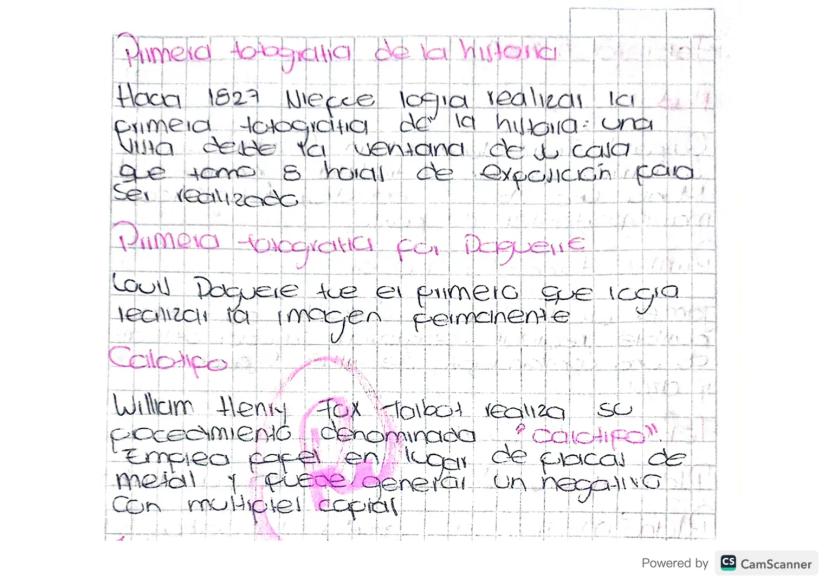 Primera fotografia de la historia
Hacia 1827 Niepce logra realizar la
primera fotografia de la historia: una
vista desde la ventana de su casa
que tomo 8 horas de exposición para
ser realizada
Primera fotografia por Daguerre
Louis Daguere fue el primero que logra
realizar la imagen permanente
Calotipo
William Henry Fox Talbot realiza su
procedimiento denominada "Calotipo".
Emplea papel en lugar de placas de
metal y puede generar un negativo
con multiples copias
Powered by CS CamScanner